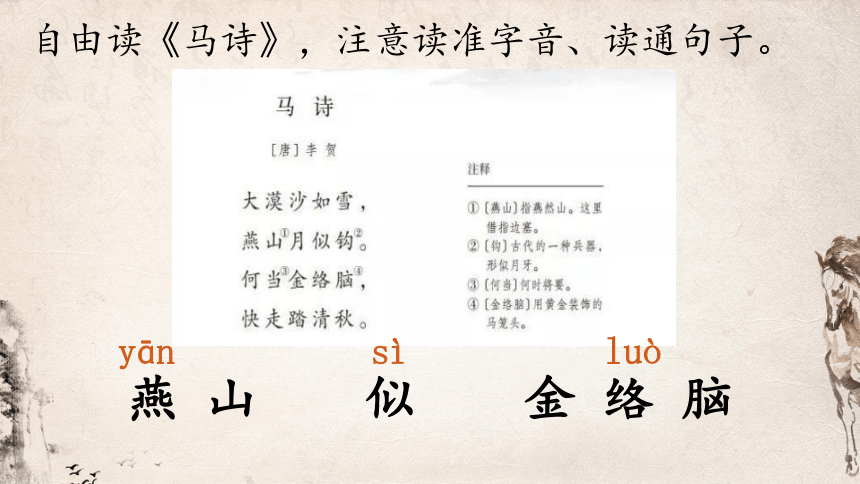 自由读《马诗》，注意读准字音、读通句子。
马 诗
[唐] 李 贺
大漠沙如雪，
燕山①月似钩②。
何当③金络脑④，
快走踏清秋。
注释
①〔燕山〕指燕然山。这里
借指边塞。
②〔钩〕古代的一种兵器，
形似月牙。
③〔何当〕何时将要。
④〔金络脑〕用黄金装饰的
马笼头。
yān sì luò
燕 山 似 金 络 脑